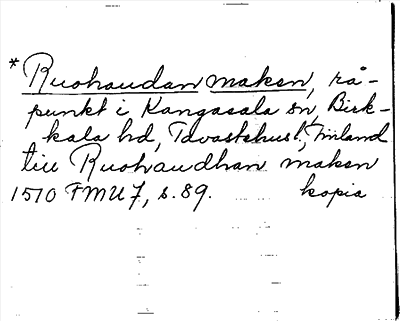 *Ruohaudan maken, rå-
punkt i Kangasala sn, Birk-
kala hd, Tavastehusl., Finland
till Ruohaudhan maken
1510 FMU 7, s. 89. kopia